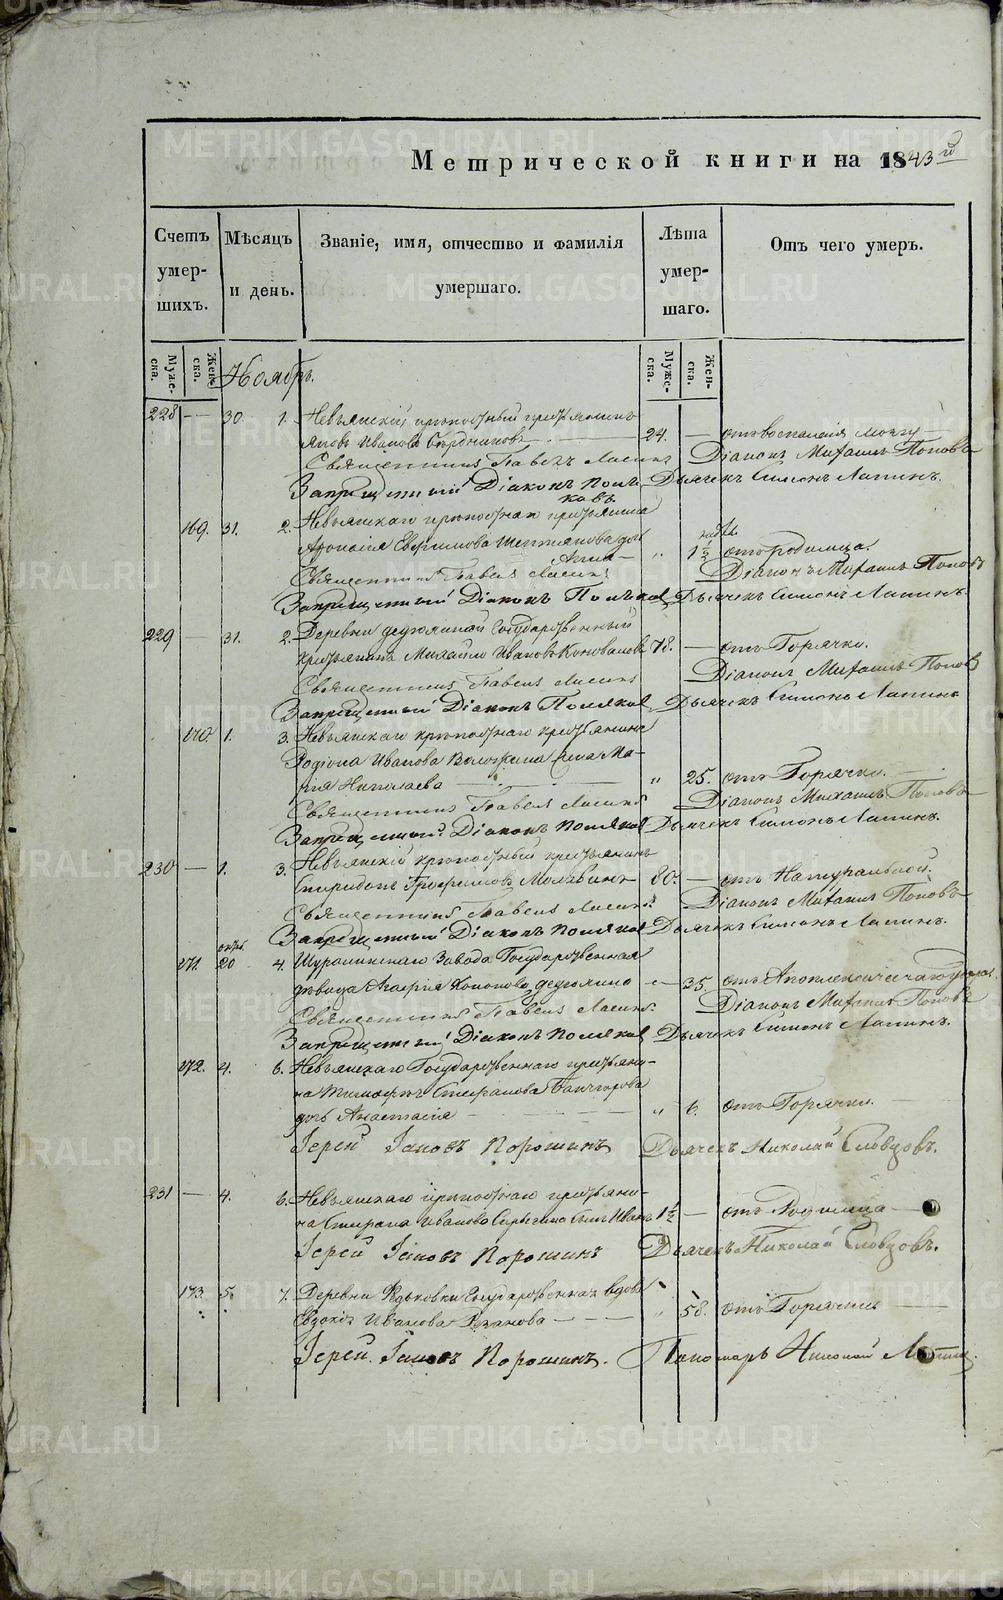 METRIKI.GASO-URAL.RU
Метрической книги на 1843й
Счетъ умер-шихъ.
Мѣсяцъ и день.
Званіе, имя, отчество и фамилія умершаго.
Лѣта умер-шаго.
Отъ чего умеръ.
Муже-ска.
Жен-ска.
Муже-ска.
Жен-ска.
Ноябрь.
228 — 30. 1. Невьянскій крѣпостный крестьянинъ
Яковъ Ивановъ 24. — отъ воспаленія мозгу —
Священникъ Павелъ Діаконъ Михаилъ Поповъ
Запрещенный Діаконъ Поляковъ Дьячекъ Симонъ Лапинъ.
169. 31. 2. Невьянскаго крѣпостнаго крестьянина
Афонасія Евфимова дочь
Анна — " 1½ отъ родимца.
Священникъ Павелъ Діаконъ Михаилъ Поповъ
Запрещенный Діаконъ Поляковъ Дьячекъ Симонъ Лапинъ.
229 — 31. 2. Деревни Федюниной Государственный
крестьянинъ Михайло Ивановъ Коноваловъ 78. — отъ Горячки.
Священникъ Павелъ Діаконъ Михаилъ Поповъ
Запрещенный Діаконъ Поляковъ Дьячекъ Симонъ Лапинъ
170. 1. 3. Невьянскаго крѣпостнаго крестьянина
Родіона Иванова жена Ма-
рія Николаева — " 25. отъ Горячки. —
Священникъ Павелъ Діаконъ Михаилъ Поповъ
Запрещенный Діаконъ Поляковъ Дьячекъ Симонъ Лапинъ.
230 — 1. 3. Невьянскій крѣпостный крестьянинъ
Спиридонъ Трофимовъ Молявинъ 80. — отъ Натуральной.
Священникъ Павелъ Діаконъ Михаилъ Поповъ
Запрещенный Діаконъ Поляковъ Дьячекъ Симонъ Лапинъ.
171. 20 4. Шуралинскаго Завода Государственная
дѣвица Федюнино — 35. отъ Апоплексическаго удара.
Священникъ Павелъ Діаконъ Михаилъ Поповъ
Запрещенный Діаконъ Поляковъ Дьячекъ Симонъ Лапинъ.
172. 4. 6. Невьянскаго Государственнаго крестьяни-
на Стефанова
дочь Анастасія — " 6. отъ Горячки. —
Іерей Іаковъ Порошинъ Дьячекъ Николай Словцовъ.
231 — 4. 6. Невьянскаго крѣпостнаго крестьяни-
на Стефана Иванова сынъ Иванъ 1½ — отъ Родимца —
Іерей Іаковъ Порошинъ Дьячекъ Николай Словцовъ.
173. 5. 7. Деревни Государственная вдова
Евдокія Иванова — " 58. отъ Горячки —
Іерей Іаковъ Порошинъ. Пономарь Николай